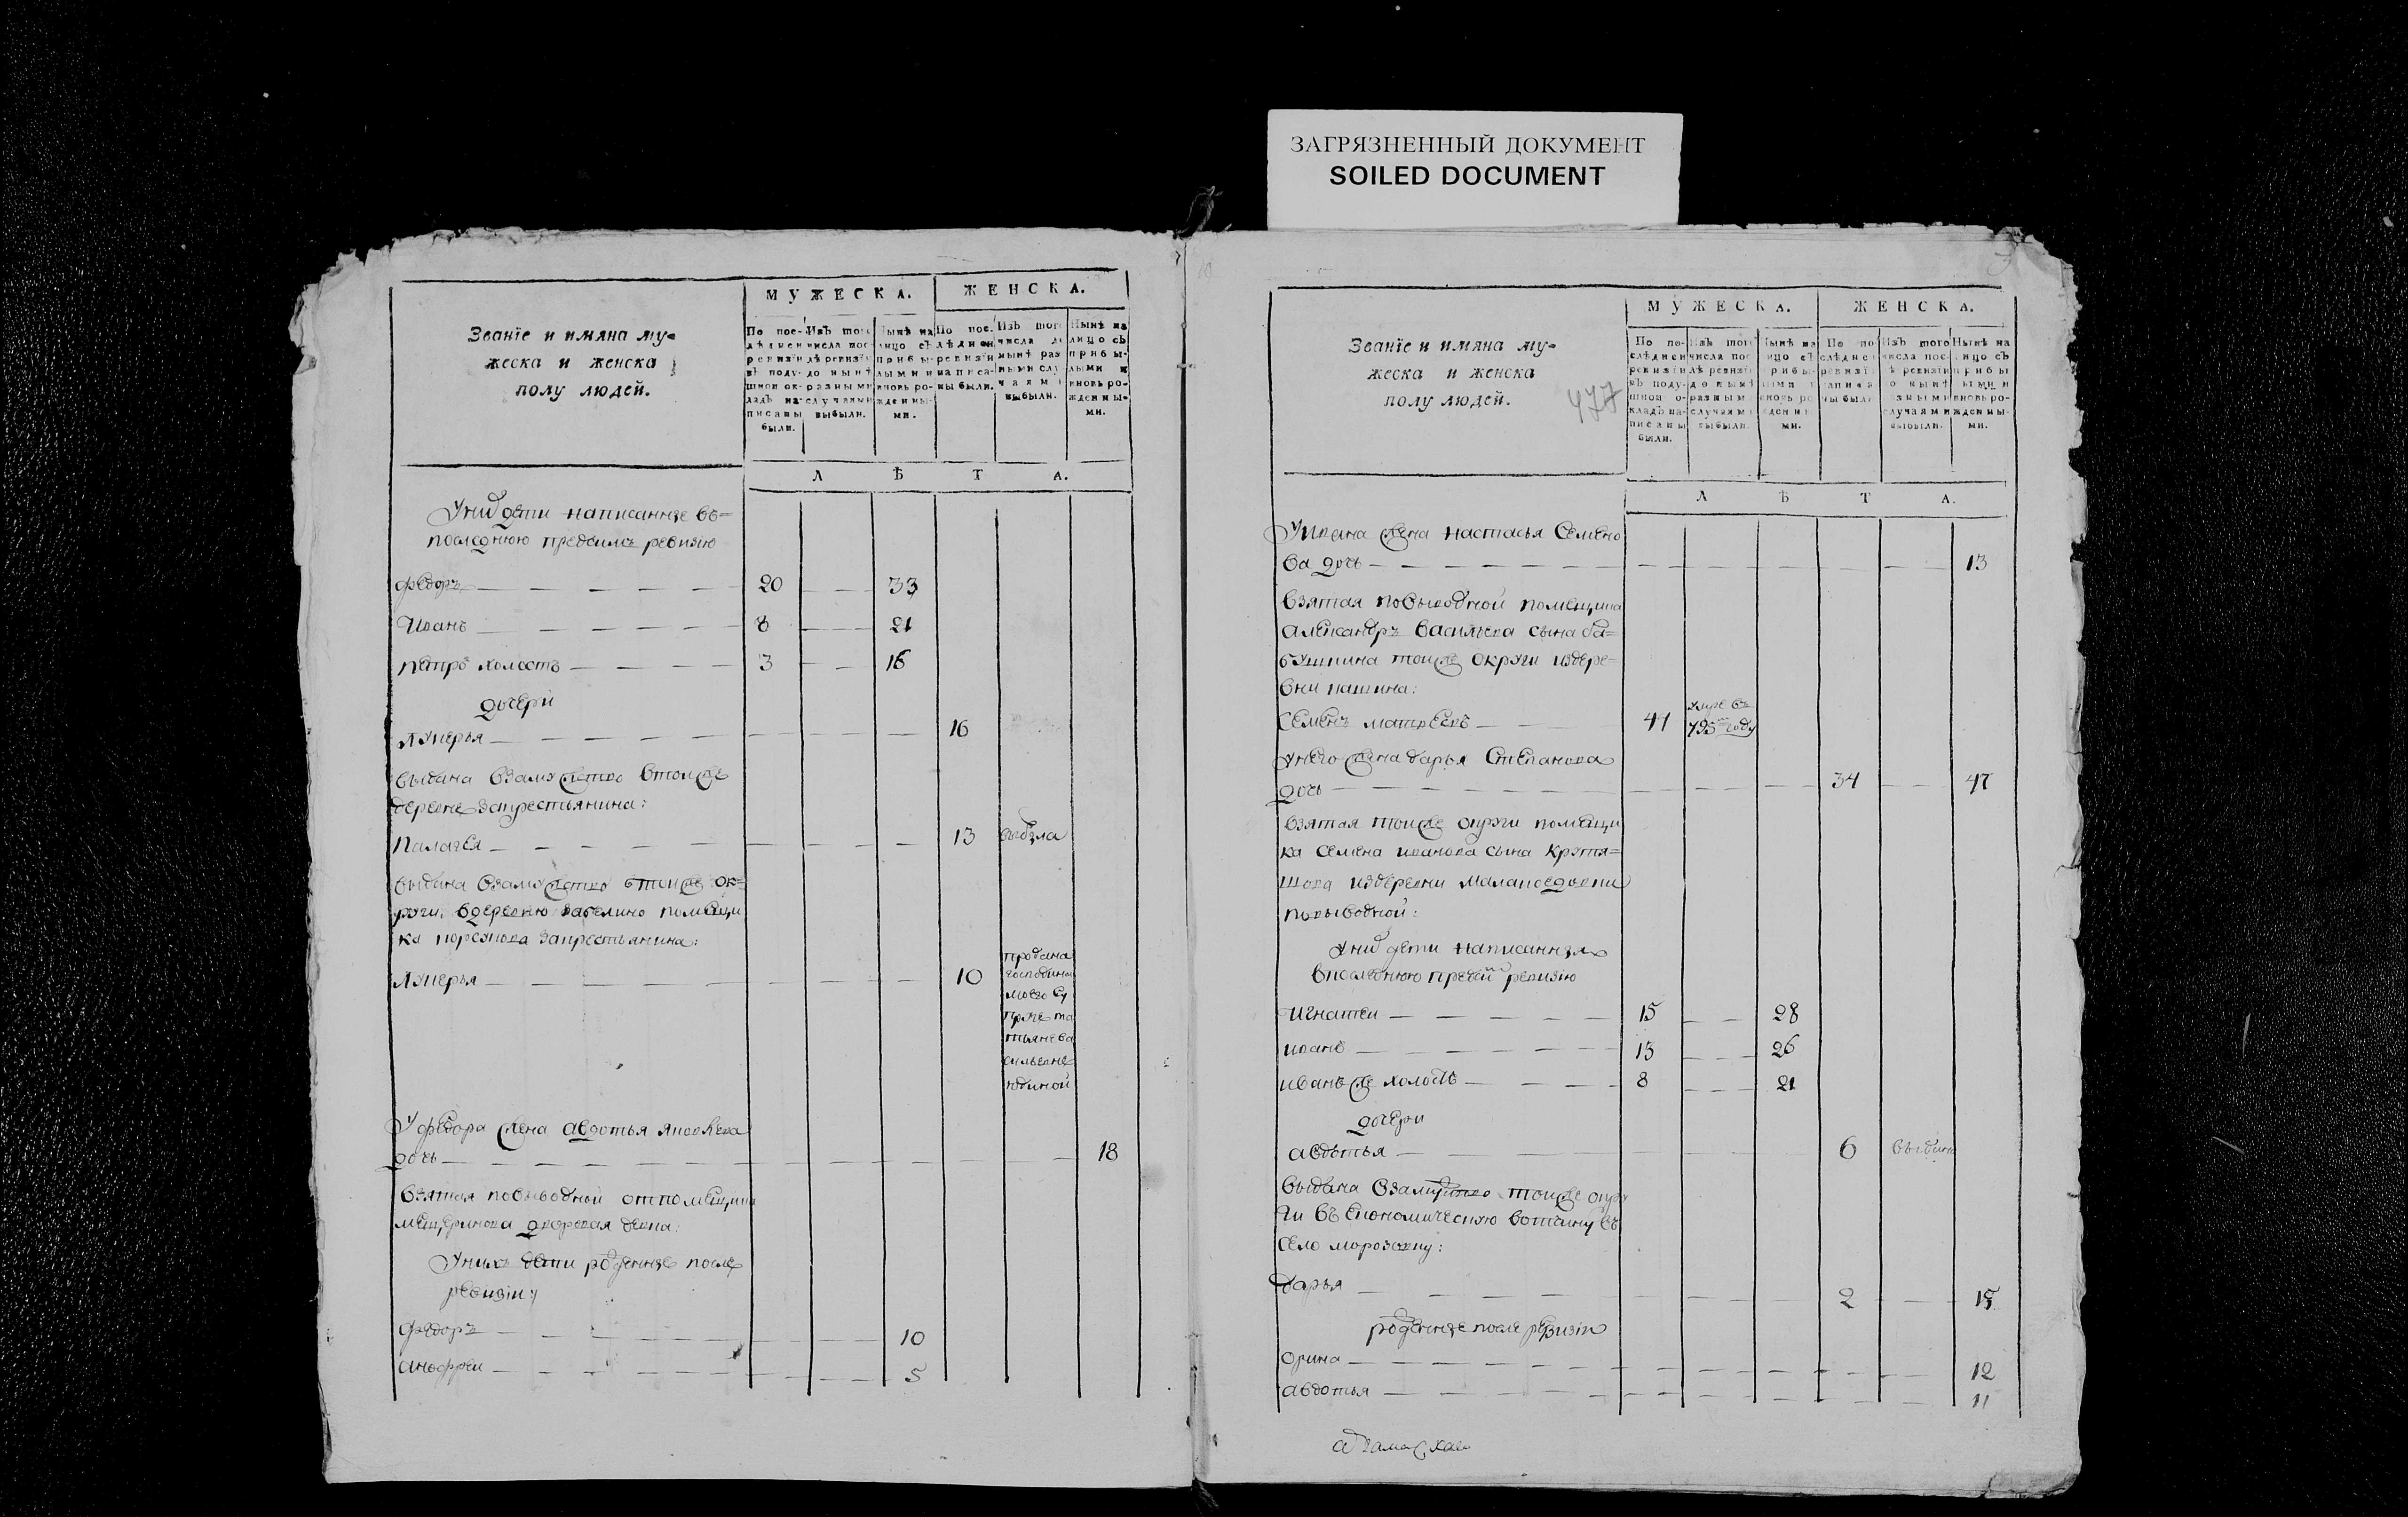 ЗАГРЯЗНЕННЫЙ ДОКУМЕНТ
SOILED DOCUMENT
Званїе и имяна му=
жеска и женска
полу людей.
МУЖЕСКА.
ЖЕНСКА.
По пос-
лѣдней
ревизїи
въ поду-
шной ок-
ладъ на-
писаны
были.
Изъ того
числа пос-
лѣ ревизїи
до нынѣ
разными
случаями
выбыли.
Нынѣ на
лицо съ
прибы-
лыми и
вновь ро-
жденны-
ми.
По пос-
лѣдней
ревизїи
написа-
ны были.
Изъ того
числа до
нынѣ раз
ными слу
чаями
выбыли.
Нынѣ на
лицо съ
прибы-
лыми и
вновь ро-
жденны-
ми.
Л Ѣ Т А.
Уних дети написанные въ=
последнюю пред сим ревизію
Федоръ 20 33
Иванъ 8 21
петръ холостъ 3 16
дочери
лукерья 16
выдана взамужство втойже
деревне закрестьянина:
Палагея 13 выбыла
выдана взамужство втойже ок=
руги вдеревню помещи
ка закрестьянина:
лукерья 10 продана
господина
моего су
пруге та
тьяне ва
сильевне
юдиной
У федора жена авдотья яковлева
дочь 18
взятая повыводной отпомещика
мещеринова дворовая девка:
Унихъ дети рожденные после
ревизіи:
Федоръ 10
анофреи 5
Званїе и имяна му=
жеска и женска
полу людей.
477
МУЖЕСКА.
ЖЕНСКА.
По по-
слѣдней
ревизїи
въ поду-
шной о-
кладъ на-
писаны
были.
Изъ того
числа пос
лѣ ревизїи
до нынѣ
разными
случаями
выбыли.
Нынѣ на
лицо съ
прибы-
лыми и
вновь ро
жденны
ми.
По по
слѣдней
ревизїи
написа
ны были
Изъ того
числа пос-
лѣ ревизїи
до нынѣ
разными
случаями
выбыли.
Нынѣ на
лицо съ
прибы
лыми и
вновь ро-
жденны-
ми.
Л Ѣ Т А.
Уивана жена настасья Семено
ва дочь 13
взятая повыводной помещика
александръ васильева сына ба=
бушкина тойже округи издере=
вни пашина:
Семенъ матвеевъ 41 умре въ
795м году
Унего жена дарья Степанова
дочь 34 47
взятая тойже округи помещи
ка семена иванова сына Крутя=
шова издеревни
повыводной:
Уних дети написанныя
впоследнюю пред сим ревизію
игнатеи 15 28
иванъ 13 26
иванъ же холостъ 8 21
дочери
авдотья 6 выдана
выдана взамужство тойже окру
ги въ економическую вотчину въ
село морозовку:
дарья 2 15
рожденные после ревизіи
орина 12
авдотья 11